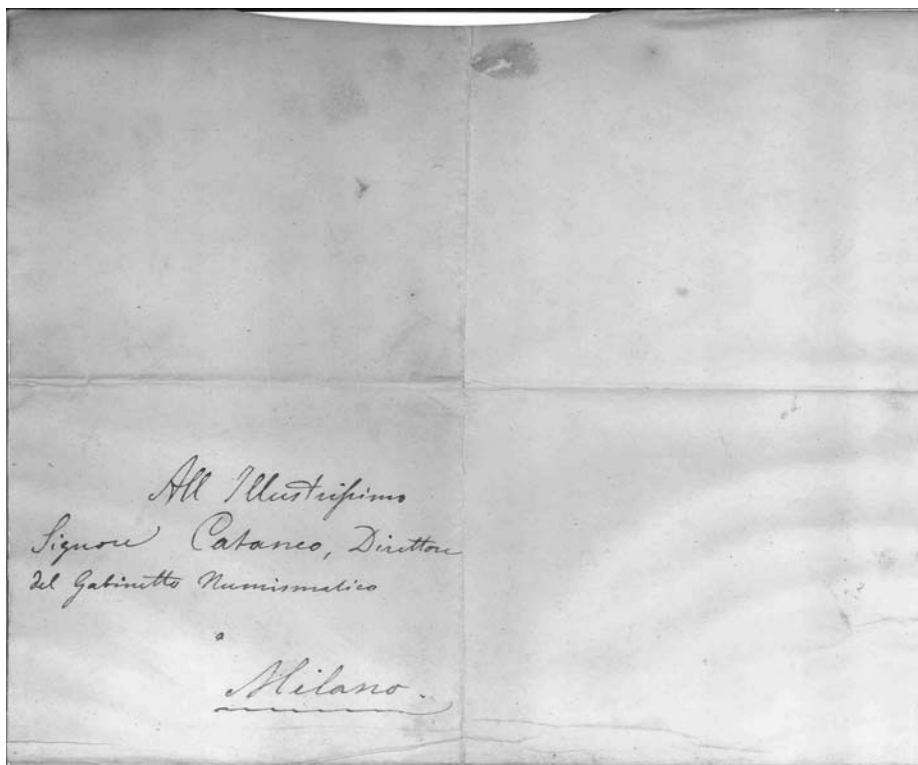 All Illustrissimo
Signore Cataneo, Direttore
del Gabinetto Numismatico
a
Milano.